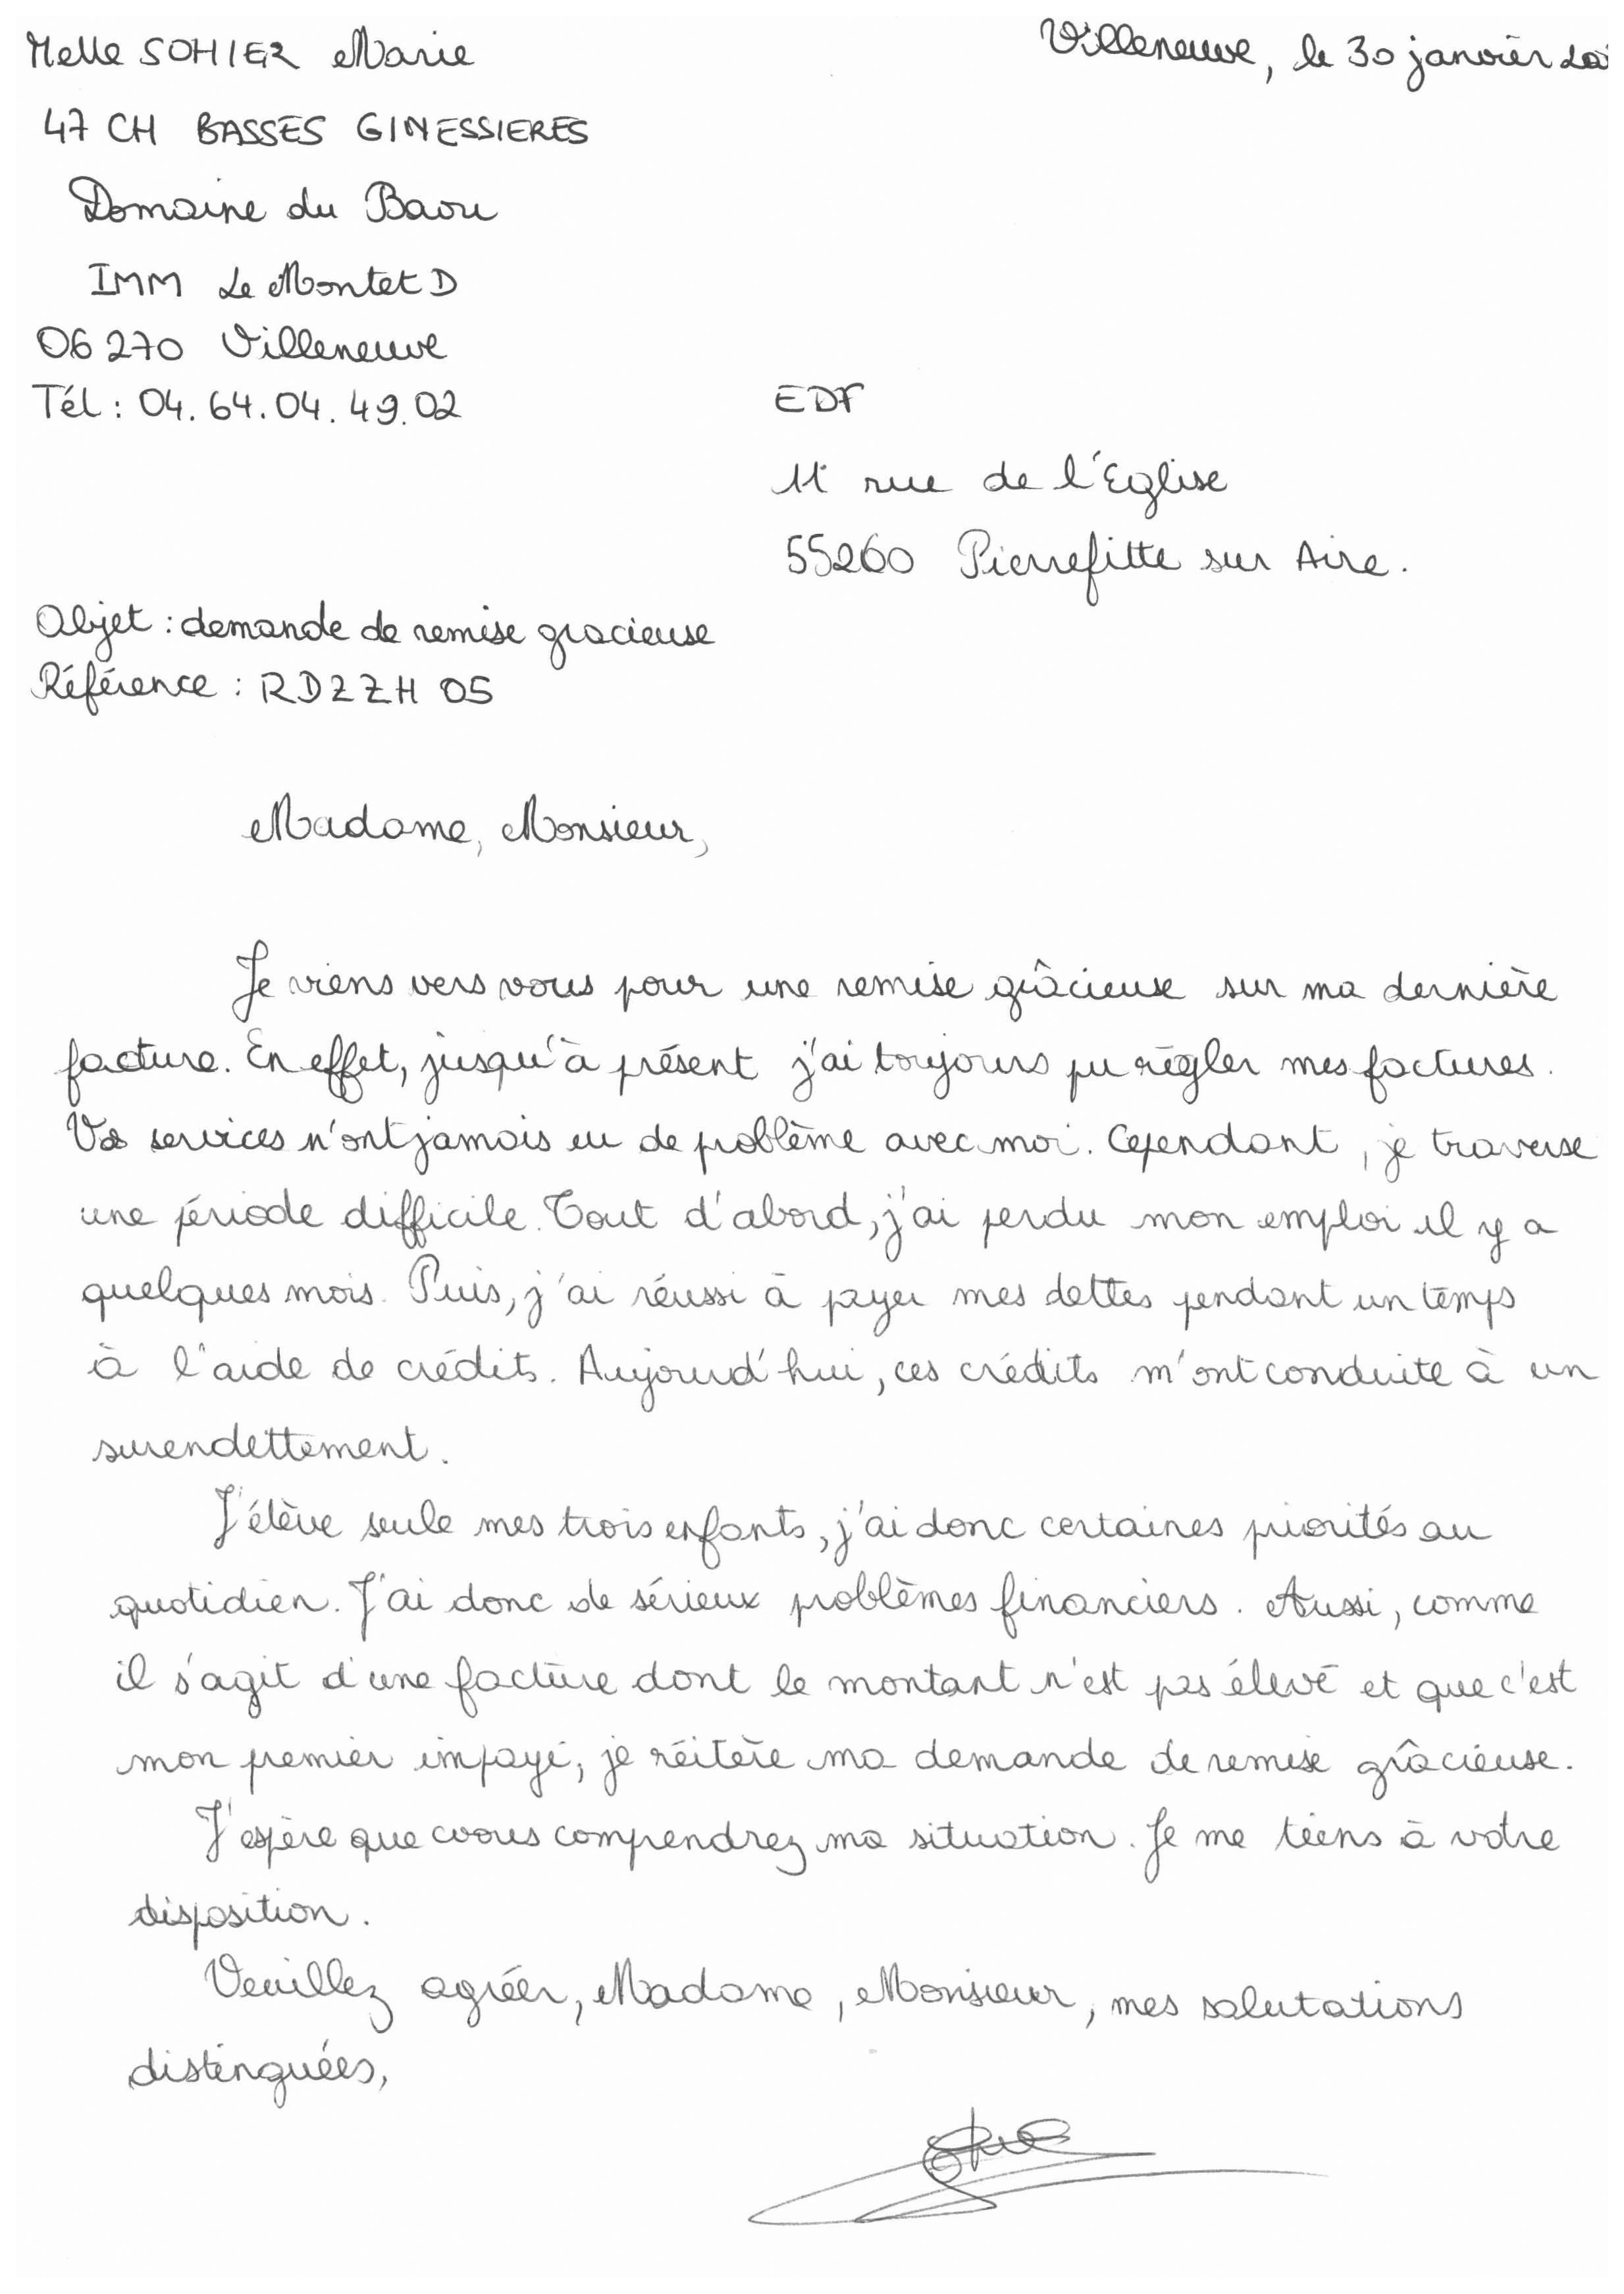 Melle SOHIER Marie
Villeneuve, le 30 janvier
47 CH BASSES GINESSIERES
Domaine du Baou
IMM Le Montet D
06270 Villeneuve
Tél : 04.64.04.49.02
EDF
11 rue de l'Eglise
55260 Pierrefitte sur Aire.
Objet : demande de remise gracieuse
Référence : RDZZH 05
Madame, Monsieur,
Je viens vers vous pour une remise grâcieuse sur ma dernière
facture. En effet, jusqu'à présent j'ai toujours pu règler mes factures.
Vos services n'ont jamais eu de problème avec moi. Cependant, je traverse
une période difficile. Tout d'abord, j'ai perdu mon emploi il y a
quelques mois. Puis, j'ai réussi à payer mes dettes pendant un temps
à l'aide de crédits. Aujourd'hui, ces crédits m'ont conduite à un
surendettement.
J'élève seule mes trois enfants, j'ai donc certaines priorités au
quotidien. J'ai donc de sérieux problèmes financiers. Aussi, comme
il s'agit d'une facture dont le montant n'est pas élevé et que c'est
mon premier impayé, je réitère ma demande de remise grâcieuse.
J'espère que vous comprendrez ma situation. Je me tiens à votre
disposition.
Veuillez agréer, Madame, Monsieur, mes salutations
distinguées,